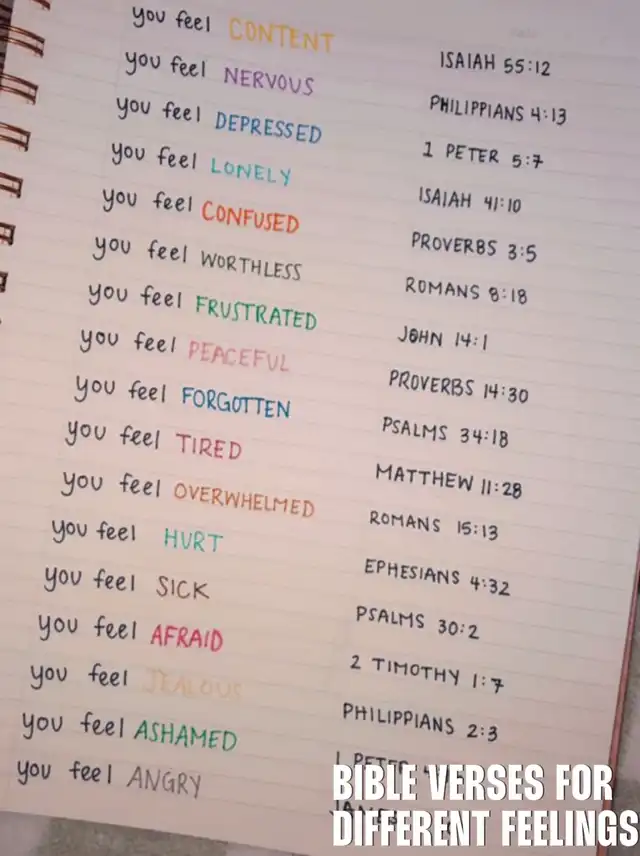 you feel CONTENT ISAIAH 55:12
you feel NERVOUS PHILIPPIANS 4:13
you feel DEPRESSED 1 PETER 5:7
you feel LONELY ISAIAH 41:10
you feel CONFUSED PROVERBS 3:5
you feel WORTHLESS ROMANS 8:18
you feel FRUSTRATED JOHN 14:1
you feel PEACEFUL PROVERBS 14:30
you feel FORGOTTEN PSALMS 34:18
you feel TIRED MATTHEW 11:28
you feel OVERWHELMED ROMANS 15:13
you feel HURT EPHESIANS 4:32
you feel SICK PSALMS 30:2
you feel AFRAID 2 TIMOTHY 1:7
you feel JEALOUS PHILIPPIANS 2:3
you feel ASHAMED 1 PETER
you feel ANGRY JAMES
BIBLE VERSES FOR
DIFFERENT FEELINGS